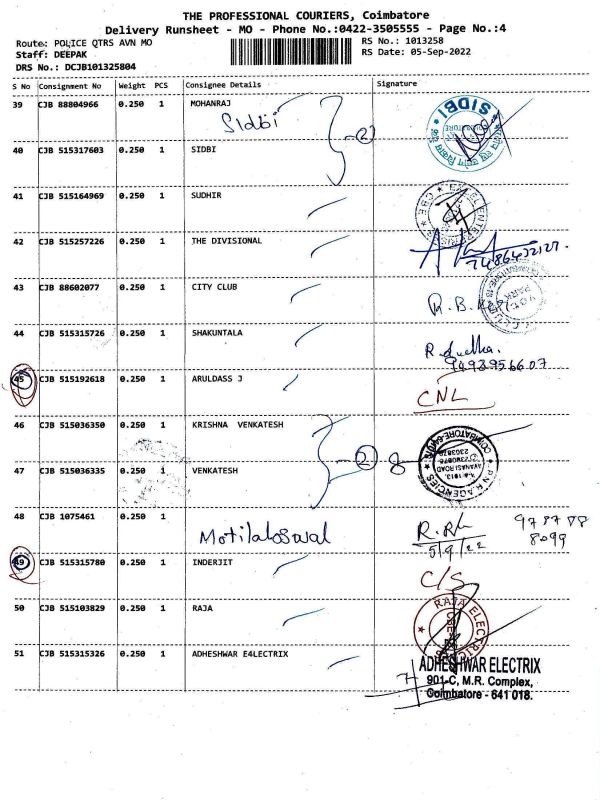 THE PROFESSIONAL COURIERS, Coimbatore
Delivery Runsheet - MO - Phone No.:0422-3505555 - Page No.:4
Route: POLICE QTRS AVN MO
RS No.: 1013258
Staff: DEEPAK
RS Date: 05-Sep-2022
DRS No.: DCJB101325804
S No Consignment No Weight PCS Consignee Details Signature
39 CJB 88804966 0.250 1 MOHANRAJ
Sidbi
2
SIDBI
40 CJB 515317603 0.250 1 SIDBI
41 CJB 515164969 0.250 1 SUDHIR
42 CJB 515257226 0.250 1 THE DIVISIONAL
43 CJB 88602077 0.250 1 CITY CLUB
R.B.
44 CJB 515315726 0.250 1 SHAKUNTALA
R
45 CJB 515192618 0.250 1 ARULDASS J
CNL
46 CJB 515036350 0.250 1 KRISHNA VENKATESH
2 8
47 CJB 515036335 0.250 1 VENKATESH
AVANASI ROAD
AGENCIES
48 CJB 1075461 0.250 1
Motilaloswal
5/9/22
8099
49 CJB 515315780 0.250 1 INDERJIT
C/S
50 CJB 515103829 0.250 1 RAJA
RAJA ELECTRIC
51 CJB 515315326 0.250 1 ADHESHWAR E4LECTRIX
ADHESHWAR ELECTRIX
901-C, M.R. Complex,
Coimbatore - 641 018.